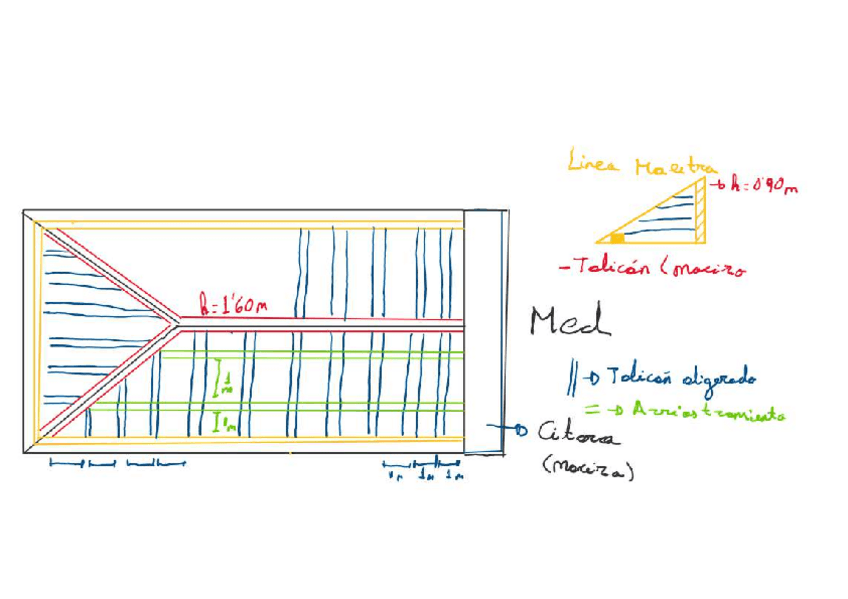 Linea Maestra
h=0'90m
- Talicón (macizo
h=1'60m
Med
1m
→ Talicón aligerado
= → Arriostramiento
1m
Citara
(maciza)
1m 1m 1m